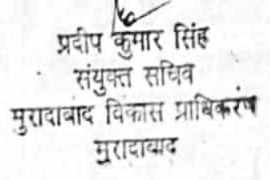 प्रदीप कुमार सिंह
संयुक्त सचिव
मुरादाबाद विकास प्राधिकरण
मुरादाबाद